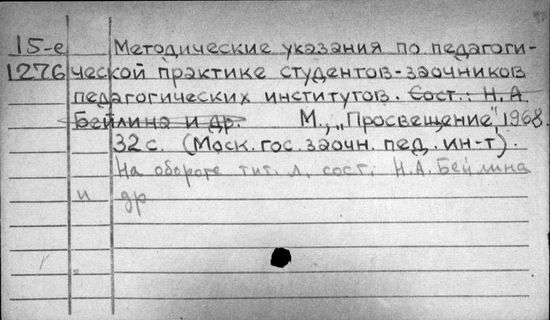 15-е Методические указания по педагоги-
1276 ческой практике студентов-заочников
педагогических институтов. Сост.: Н.А.
Бейлина и др. М., „Просвещение", 1968.
32 с. (Моск. гос. заочн. пед. ин-т).
На обороте тит. л. сост.: Н.А. Бейлина
и др